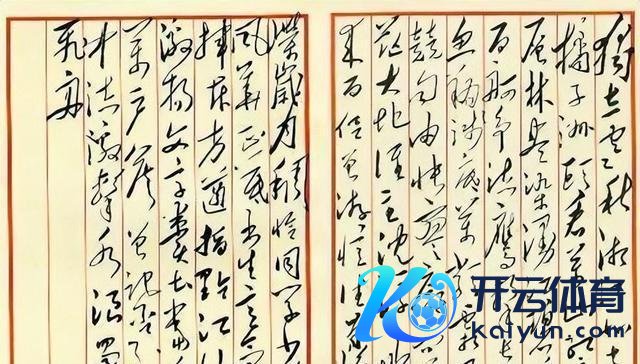 独立寒秋湘
橘子洲头看万山
层林尽染漫江
百舸争流鹰
鱼翔浅底万类霜
竞自由怅寥廓
茫大地谁主沉浮
来百侣曾游忆往
嵘岁月稠恰同学少
风华正茂书生意气
挥斥方遒指点江山
激扬文字粪土当年
万户侯曾记否
中流击水浪遏
飞舟
开云体育
kaiyun.com